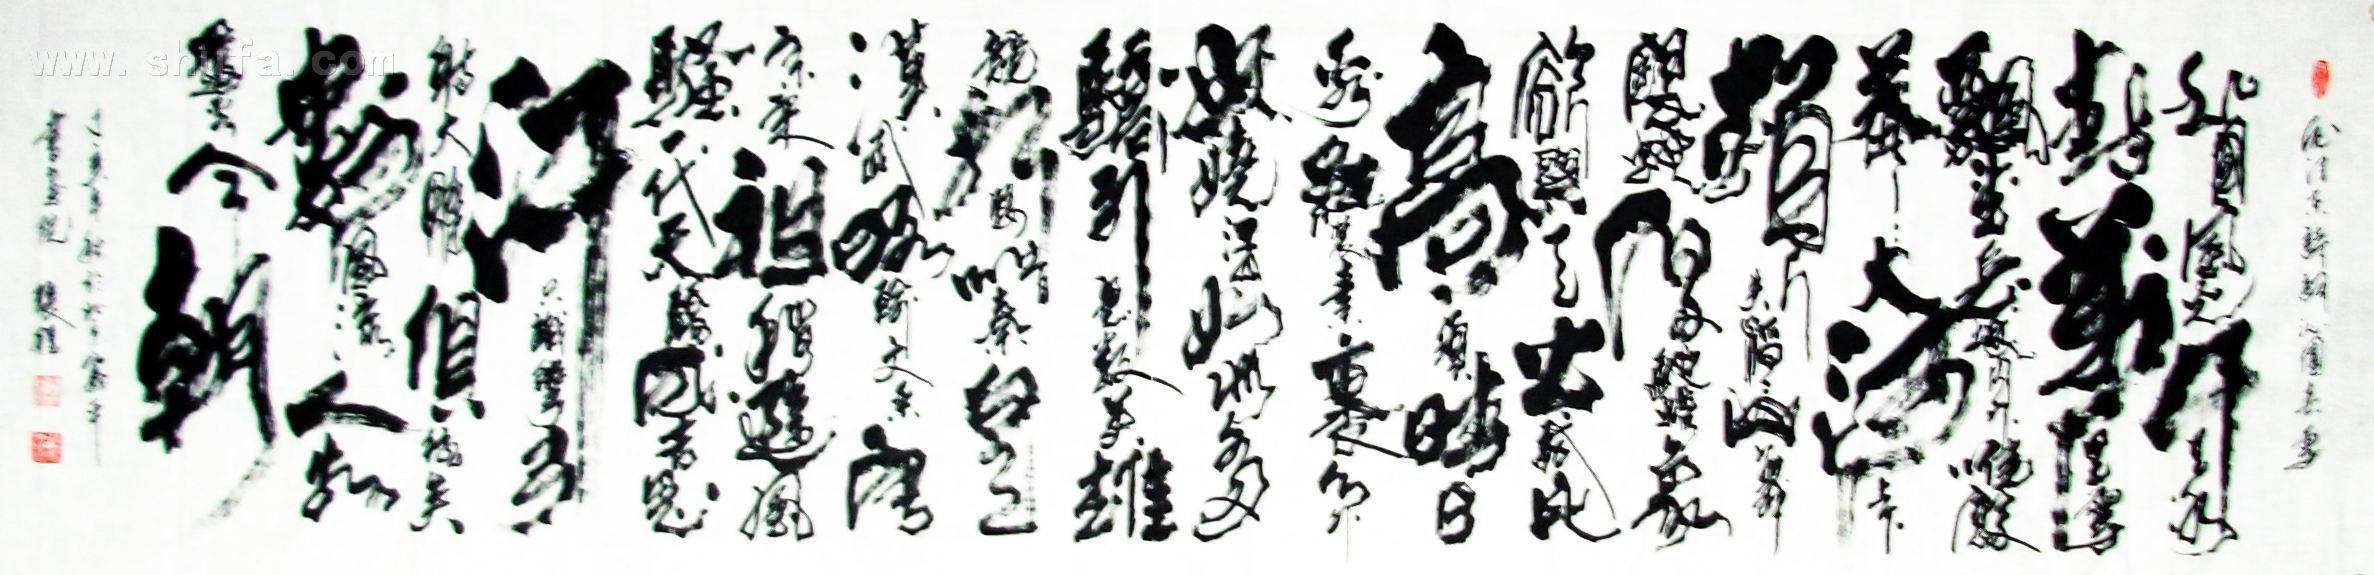 北國風光千里冰
封萬里雪
飄望長城內外惟餘
莽莽大河上
下頓失滔滔山舞
銀蛇原馳蠟象
欲與天公試比
高須晴日
看紅裝素裹分外
妖嬈江山如此多
嬌引無數英雄
競折腰惜秦皇
漢武略輸文采唐
宗宋祖稍遜風
騷一代天驕成吉思
汗只識彎弓
射大雕俱往矣
數風流人物
還看今朝
www.shufa.com